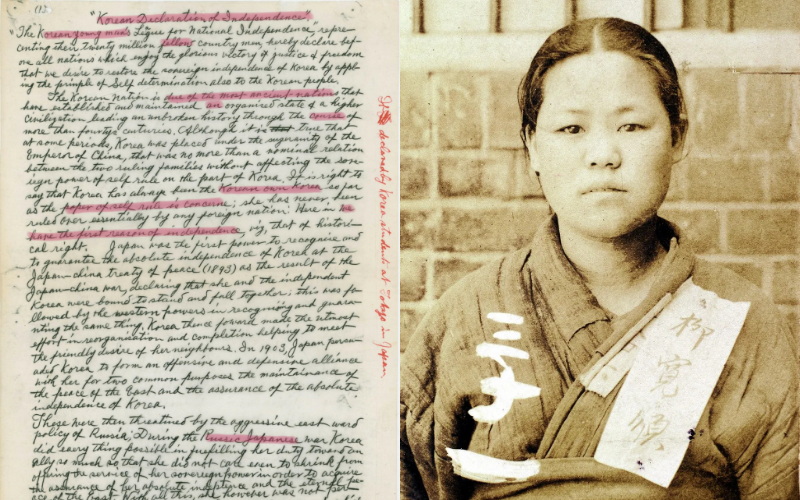 (12)
"Korean Declaration of Independence".
"The Korean young man's League for National Independence", repre-
centing their twenty million fellow country men, hereby declare bef-
ore all nations which enjoy the glorious victory of justice & freedom
that we desire to restore the sovereign independence of Korea by apply-
ing the principle of self determination also to the Korean people.
The Korean Nation is one of the most ancient nations that
have established and maintained an organised state of a higher
civilization leading an unbroken history through the course of
more than fourty centuries. Although it is that true that
at some periods, Korea was placed under the suzerainty of the
Emperor of China, that was no more than a nominal relation
between the two ruling families without affecting the sov-
ereign power of self rule on the part of Korea. It is right to
say that Korea has always been the Korean own Korea so far
as the power of self rule is concerne; she has never been
ruled over essentially by any foreign nation. Here is we
have the first reason of independence, viz, that of histori-
cal right. Japan was the first power to recognise and
to guarantee the absolute independence of Korea at the
Japan-china treaty of peace (1895) as the result of the
Japan-china war, declaring that she and the independent
Korea were bound to stand and fall together; this was fo-
llowed by the western powers in recognizing and guara-
nting the same thing. Korea thence forward made the utmost
effort in reorganisation and completion helping to meet
the friendly desire of her neighbours. In 1903, Japan persu-
aded Korea to form an offensive and defensive alliance
with her for two common purposes the maintainance of
the peace of the East and the assurance of the absolute
independence of Korea.
These were then threatined by the aggressive east ward
policy of Russia; During the Russic Japanese war Korea
did every thing possible in fulfilling her duty toward an
ally so much so that she did not care even to shrink from
offering the service of her sovereign power in order to acquire
the assurance of her absolute indeptince and the eternal pe-
ace of the East. With all this, she however was not
declared by Korean students at Tokyo in Japan
柳寬順